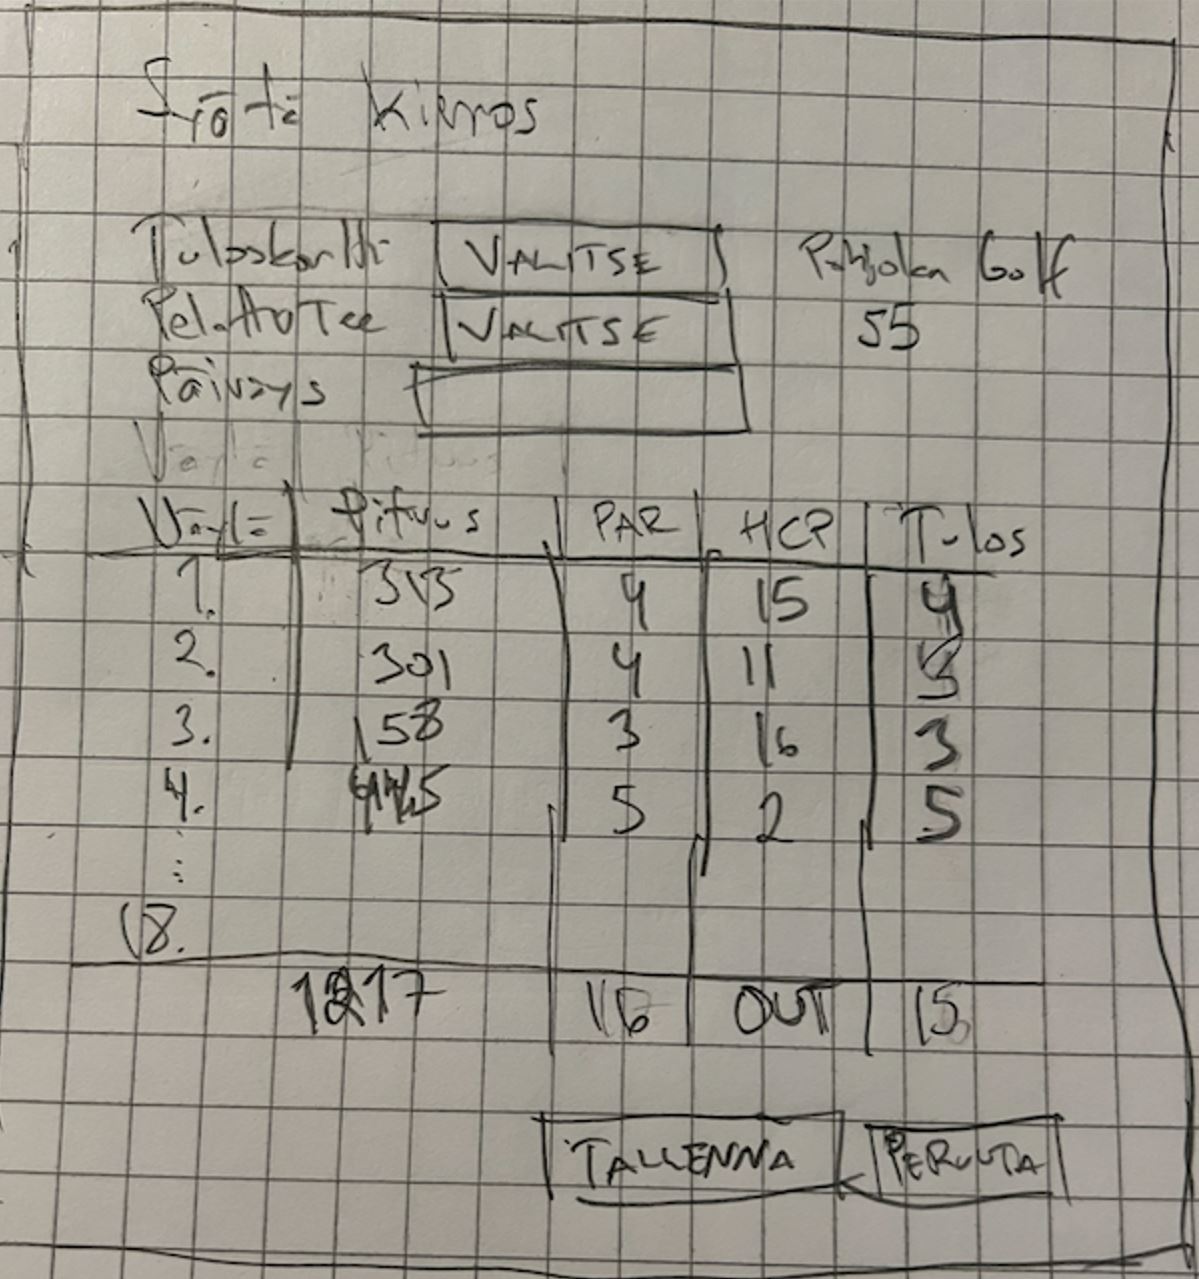 Syötä Kierros
Tuloskortti VALITSE Pohjolan Golf
Pelattu Tee VALITSE 55
Päiväys
Väylä Pituus
Väylä Pituus PAR HCP Tulos
1. 313 4 15 4
2. 301 4 11
3. 158 3 16 3
4. 5 2 5
⋮
18.
1217 16 OUT 15
TALLENNA PERUUTA